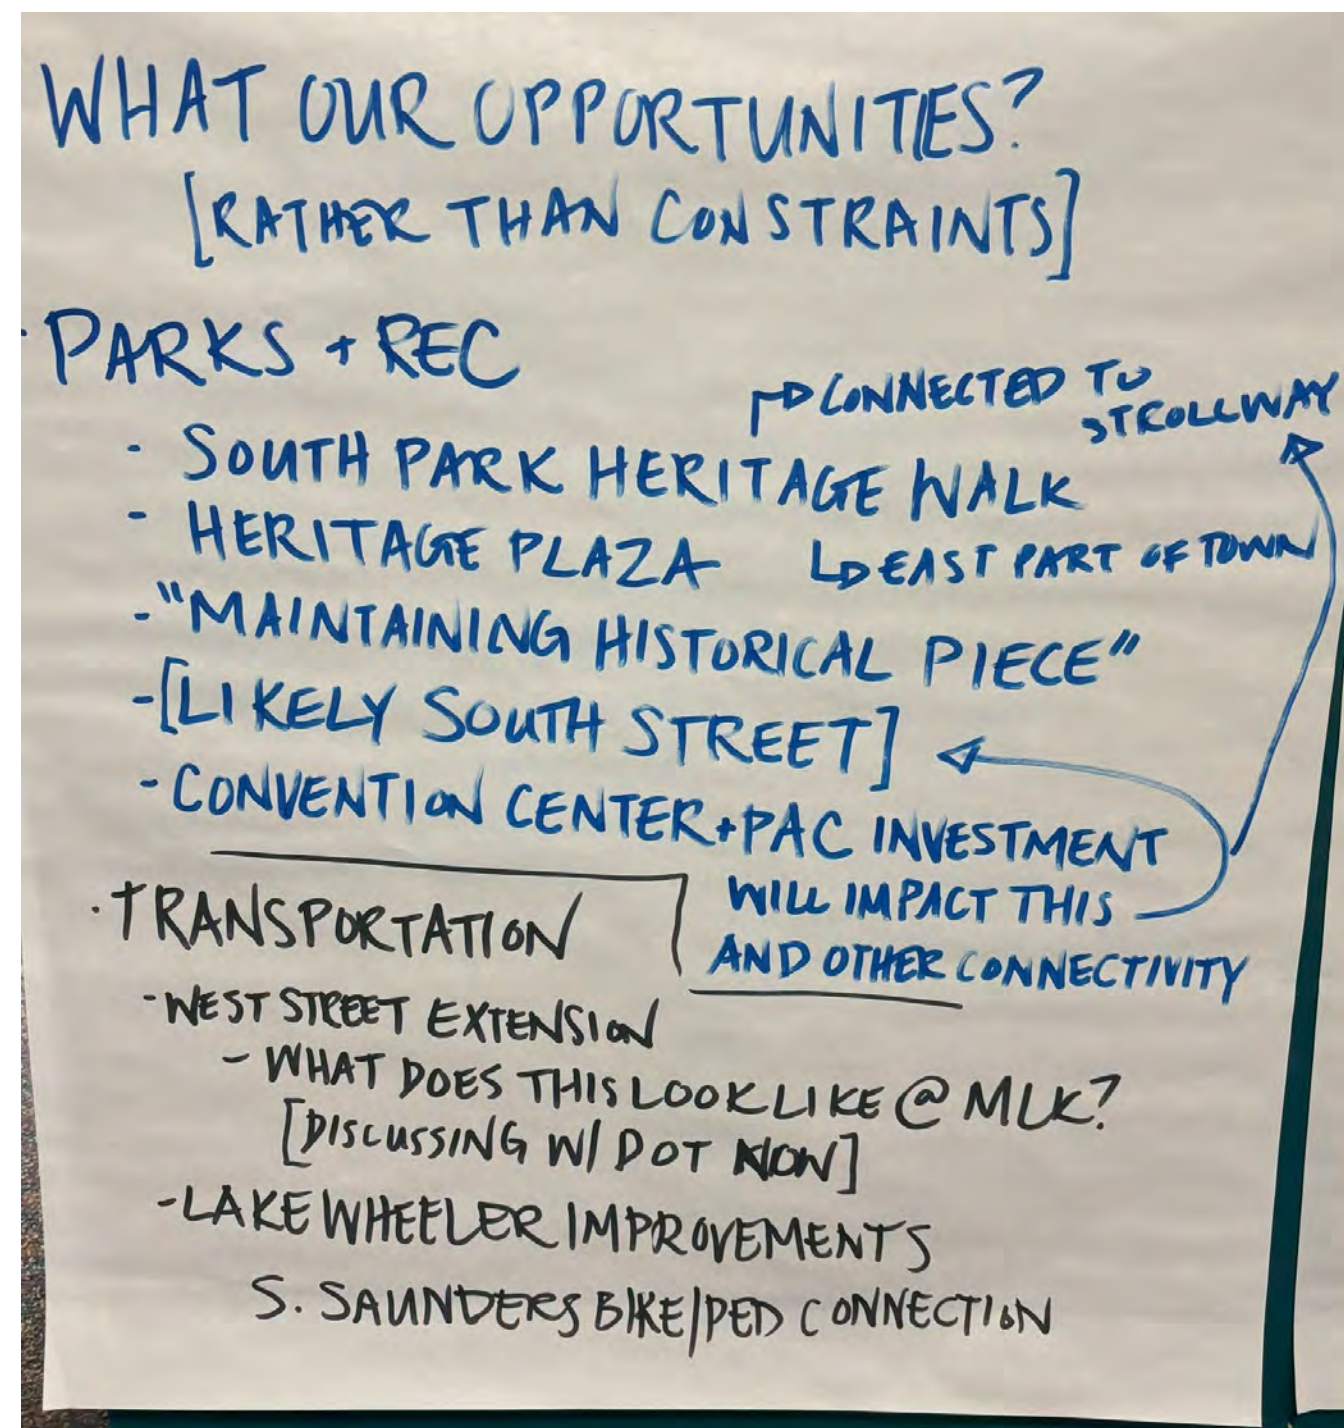 WHAT OUR OPPORTUNITIES?
[RATHER THAN CONSTRAINTS]
· PARKS + REC
CONNECTED TO
STROLLWAY
- SOUTH PARK HERITAGE WALK
- HERITAGE PLAZA
EAST PART OF TOWN
- "MAINTAINING HISTORICAL PIECE"
- [LIKELY SOUTH STREET]
- CONVENTION CENTER + PAC INVESTMENT
WILL IMPACT THIS
AND OTHER CONNECTIVITY
· TRANSPORTATION
- WEST STREET EXTENSION
- WHAT DOES THIS LOOK LIKE @ MLK?
[DISCUSSING W/ DOT NOW]
- LAKE WHEELER IMPROVEMENTS
S. SAUNDERS BIKE/PED CONNECTION